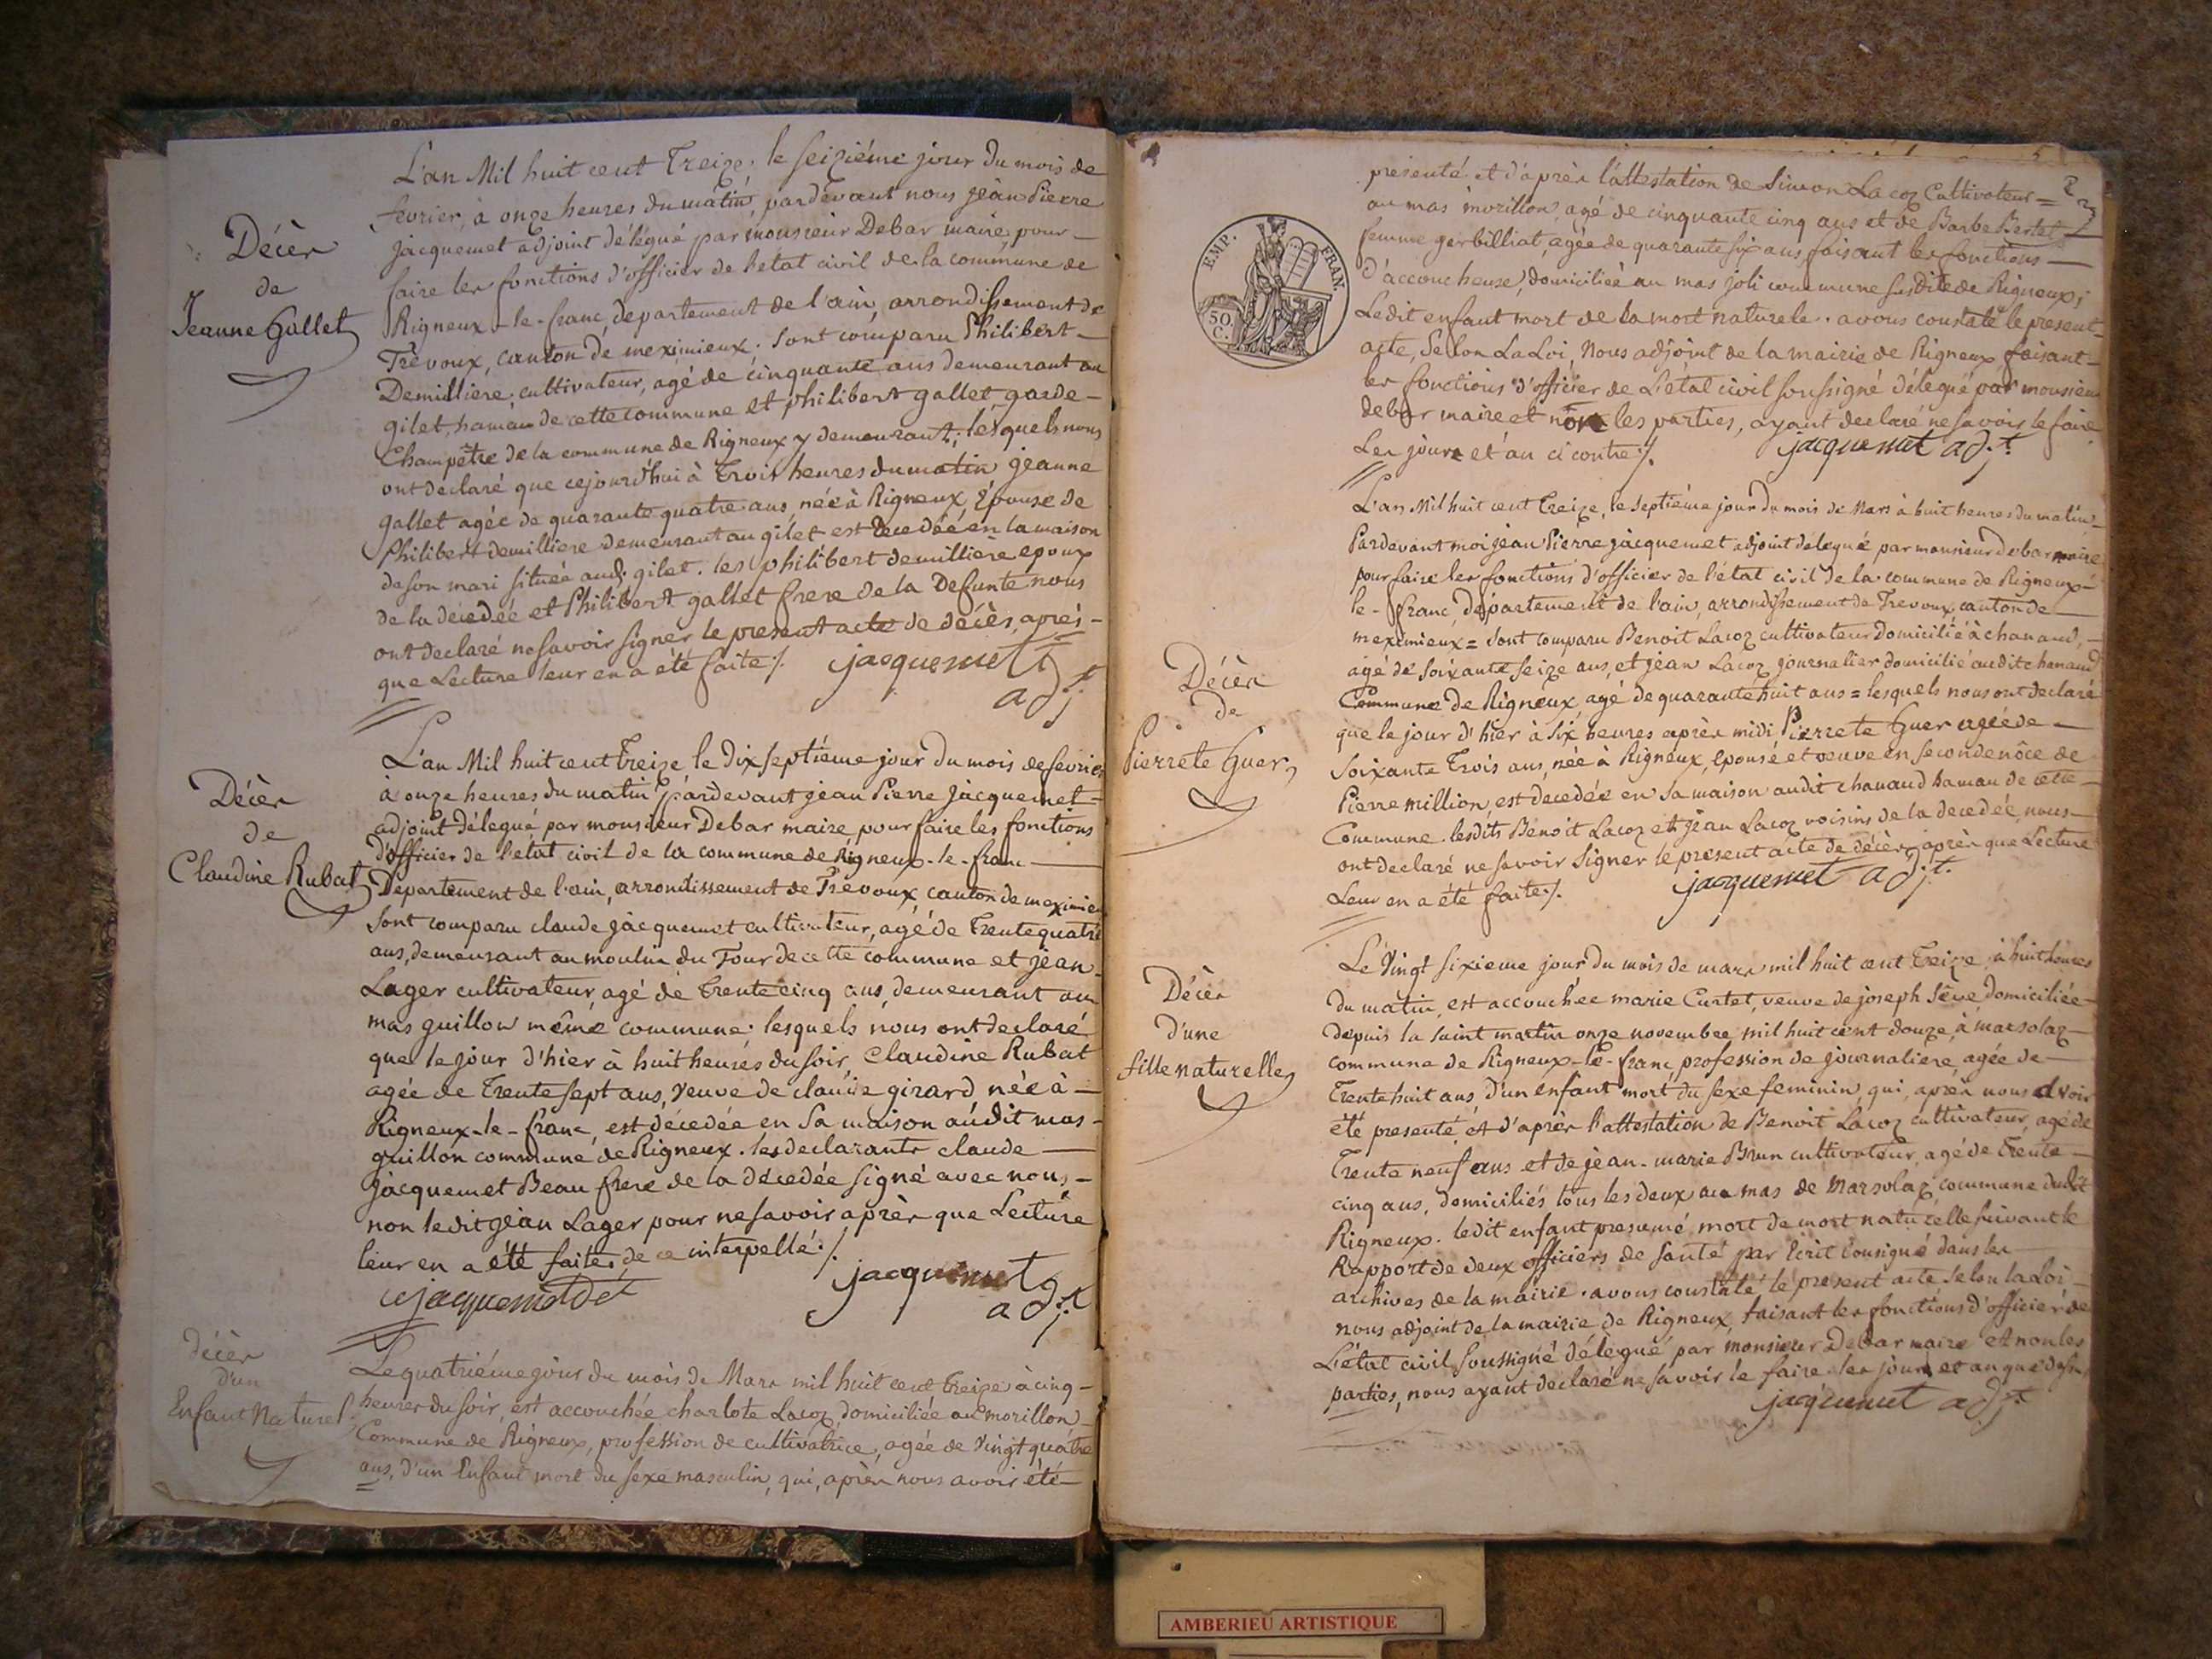 L'an Mil huit cent Treize, le seizième jour du mois de
fevrier, à onze heures du matin, pardevant nous jean Pierre
jacquemet adjoint délégué par monsieur Debar maire, pour
faire les fonctions d'officier de l'etat civil de la commune de
Rigneux-le-franc, departement de l'ain, arrondissement de
Trévoux, canton de meximieux. sont comparu Philibert
Demilliere, cultivateur, agé de cinquante ans demeurant au
gilet, hamau de cette commune et philibert gallet, garde-
Champêtre de la commune de Rigneux y demeurant; lesquels nous
ont declaré que cejourd'hui à Trois heures du matin jeanne
gallet agée de quarante quatre ans, née à Rigneux, Epouse de
Philibert demilliere demeurant au gilet est décédée en la maison
de son mari située aud. gilet. les philibert demilliere epoux
de la décedée et Philibert gallet frere de la Defunte nous
ont declaré ne savoir signer le present acte de décès, après-
que Lecture leur en a été faite ./. jacquemet
adjt
Décès
de
Jeanne Gallet
L'an Mil huit cent Treize, le dix septième jour du mois de fevrier
à onze heures du matin, pardevant jean Pierre Jacquemet
adjoint délegué par monsieur Debar maire, pour faire les fonctions
d'officier de l'etat civil de la commune de Rigneux-le-franc
Departement de l'ain, arrondissement de Trévoux, canton de meximieu
sont comparu claude jacquemet cultivateur, agé de Trente quatre
ans, demeurant au moulin du Four de cette commune et jean
Lager cultivateur, agé de trente cinq ans, demeurant au
mas guillon même commune. lesquels nous ont declaré
que le jour d'hier à huit heures du soir, Claudine Rubat
agée de Trente sept ans, veuve de claude girard née à
Rigneux-le-franc, est décedée en sa maison audit mas-
guillon commune de Rigneux. les declarants claude
jacquemet Beau frere de la décedée signé avec nous,
non ledit jean Lager pour ne savoir après que Lecture
leur en a été faite, de ce interpellé ./.
jacquemet
adjt
Décès
de
Claudine Rubat
Le quatrième jour du mois de Mars mil huit cent treize à cinq
heures du soir, est accouchée charlote Lacoz, domiciliée au morillon
Commune de Rigneux, profession de cultivatrice, agée de vingt quatre
ans, d'un Enfant mort du sexe masculin, qui, après nous avoir été
décès
d'un
Enfant Naturel
présenté et d'après l'attestation de Simon Lacoz Cultivateur =
au mas morillon, agé de cinquante cinq ans et de Barbe Bertet
femme gerbilliat, agée de quarante six ans, faisant les fonctions
d'accoucheuse, domiciliée au mas joli commune susdite de Rigneux;
Ledit enfant mort de la mort naturele. avons constaté le present
acte, selon La Loi, Nous adjoint de la mairie de Rigneux, faisant
les fonctions d'officier de L'état civil soussigné délegué par monsieur
debar maire et non les parties, ayant declaré ne savoir le faire
Les jours et an ci contre ./. jacquemet adjt.
EMP. FRAN.
50
C.
L'an Mil huit cent Treize, le septième jour du mois de Mars à huit heures du matin
Pardevant moi jean Pierre jacquemet adjoint delegué par monsieur debar maire
pour faire les fonctions d'officier de l'état civil de la commune de Rigneux-
le-franc, département de l'ain, arrondissement de Trevoux, canton de
meximieux = sont comparu Benoit Lacoz cultivateur domicilié à chanaud,
agé de soixante seize ans, et jean Lacoz journalier domicilié audit chanaud
Commune de Rigneux agé de quarante huit ans = lesquels nous ont declaré
que le jour d'hier à six heures après midi Pierrete Guer agée de
soixante Trois ans, née à Rigneux, epouse et veuve en seconde nôce de
Pierre million, est decedée en sa maison audit chanaud hamau de cette
Commune. lesdits Benoit Lacoz et jean Lacoz voisins de la decedée, nous
ont declaré ne savoir Signer le present acte de décès, après que Lecture
Leur en a été faite ./. jacquemet adjt.
Décès
de
Pierrete Guer
Le Vingt sixieme jour du mois de mars mil huit cent Treize, à huit heures
du matin, est accouchée marie Curtet, veuve de joseph Sève domiciliée
depuis la saint martin onze novembre mil huit cent douze, à marsolaz
commune de Rigneux-le-franc, profession de journaliere, agée de
Trente huit ans, d'un enfant mort du sexe feminin, qui, après nous avoir
été presenté, et d'après l'attestation de Benoit Lacoz cultivateur, agé de
Trente neuf ans et de jean-marie Brun cultivateur, agé de Trente
cinq ans, domiciliés tous les deux au mas de Marsolaz commune dudit
Rigneux. ledit enfant presumé mort de mort naturelle suivant le
Rapport de deux officiers de santé par Ecrit consigné dans les
archives de la mairie. avons constaté le present acte selon la Loi
nous adjoint de la mairie de Rigneux, faisant les fonctions d'officier de
L'état civil, soussigné délegué par monsieur Debar maire et non les
parties, nous ayant declaré ne savoir le faire. les jours et an que dessus
jacquemet adjt.
Décès
d'une
fille naturelle
AMBERIEU ARTISTIQUE